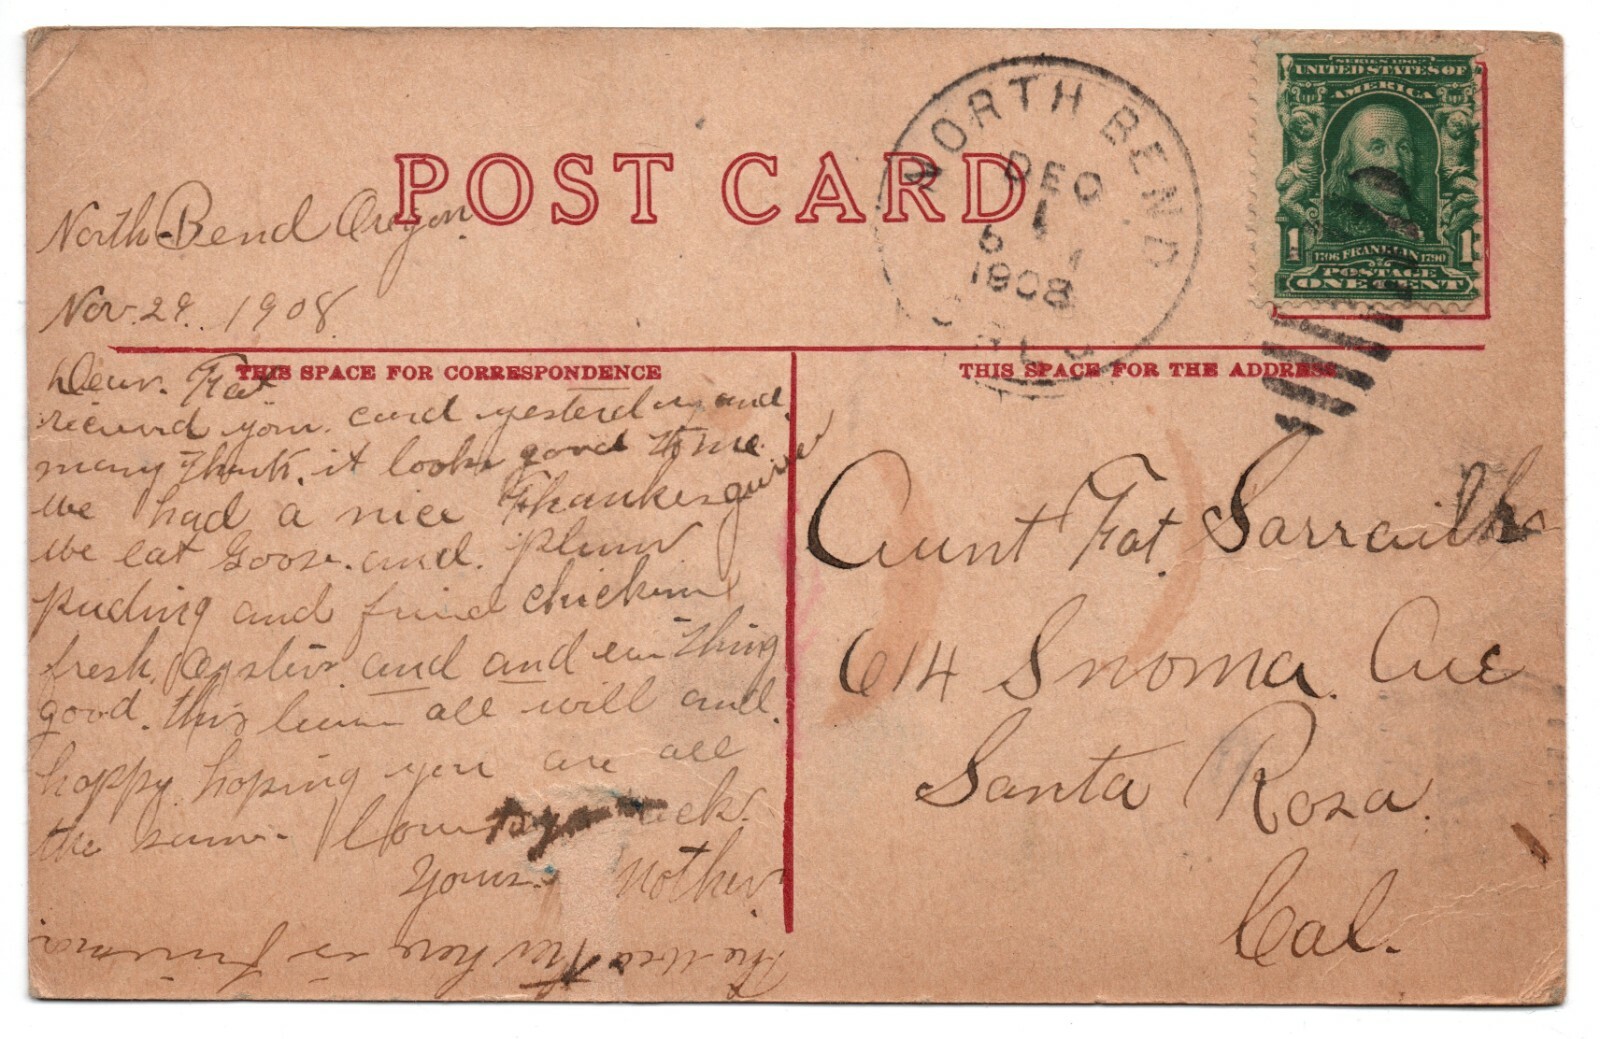 POST CARD
North Bend Oregon.
Nov. 29. 1908
THIS SPACE FOR CORRESPONDENCE
Dear. Fat
recieved your card yesterday and
many Thank. it looks good to me
we had a nice Thankesgivine
we eat goose. and. plum
puding and fried chickin
fresh. Oysters and and evrithing
good. this leave all will and.
happy. hoping you are all
the same.
Yours. Mother
The weather here is fine
NORTH BEND
DEC
1
1908
OREG
SERIES 1902
UNITED STATES OF
AMERICA
1 1
1706 FRANKLIN 1790
POSTAGE
ONE CENT
THIS SPACE FOR THE ADDRESS
Aunt Fat. Sarrailh
614 Snoma. Ave
Santa Rosa.
Cal.